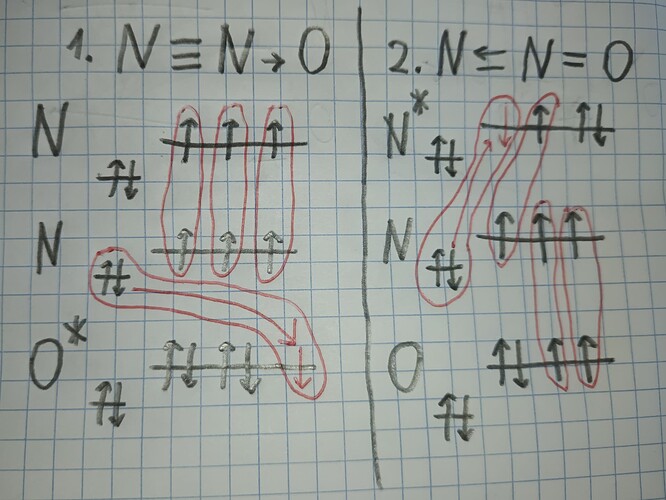 1. N≡N→O
2. N⇇N=O
N
N
O*
N*
N
O